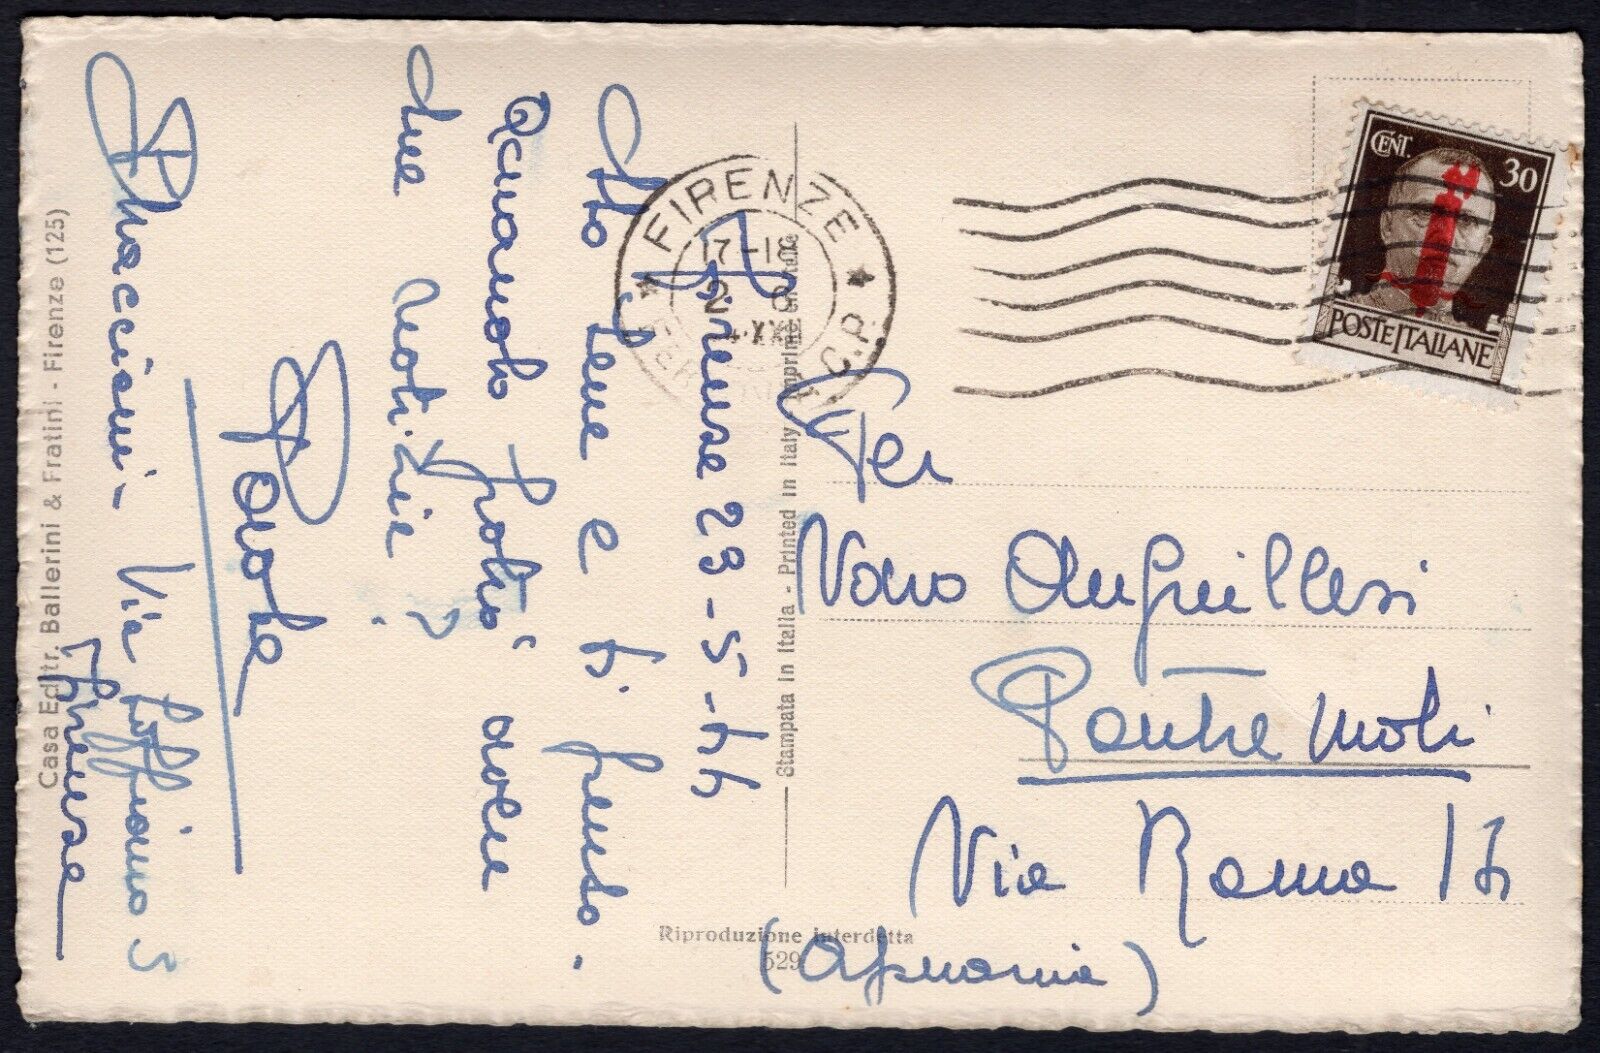 Firenze 23-5-44
Sto bene e ti penso.
Quando potrò avere
tue notizie?
Paola
Via
Firenze
Casa Editr. Ballerini & Fratini - Firenze (125)
Stampata in Italia - Printed in Italy - Imprimé en Italie
Riproduzione interdetta
529
FIRENZE
FERROVIA C.P.
CENT. 30
POSTE ITALIANE
Anguillesi
Pontremoli
Via Roma 17
(Apuania)